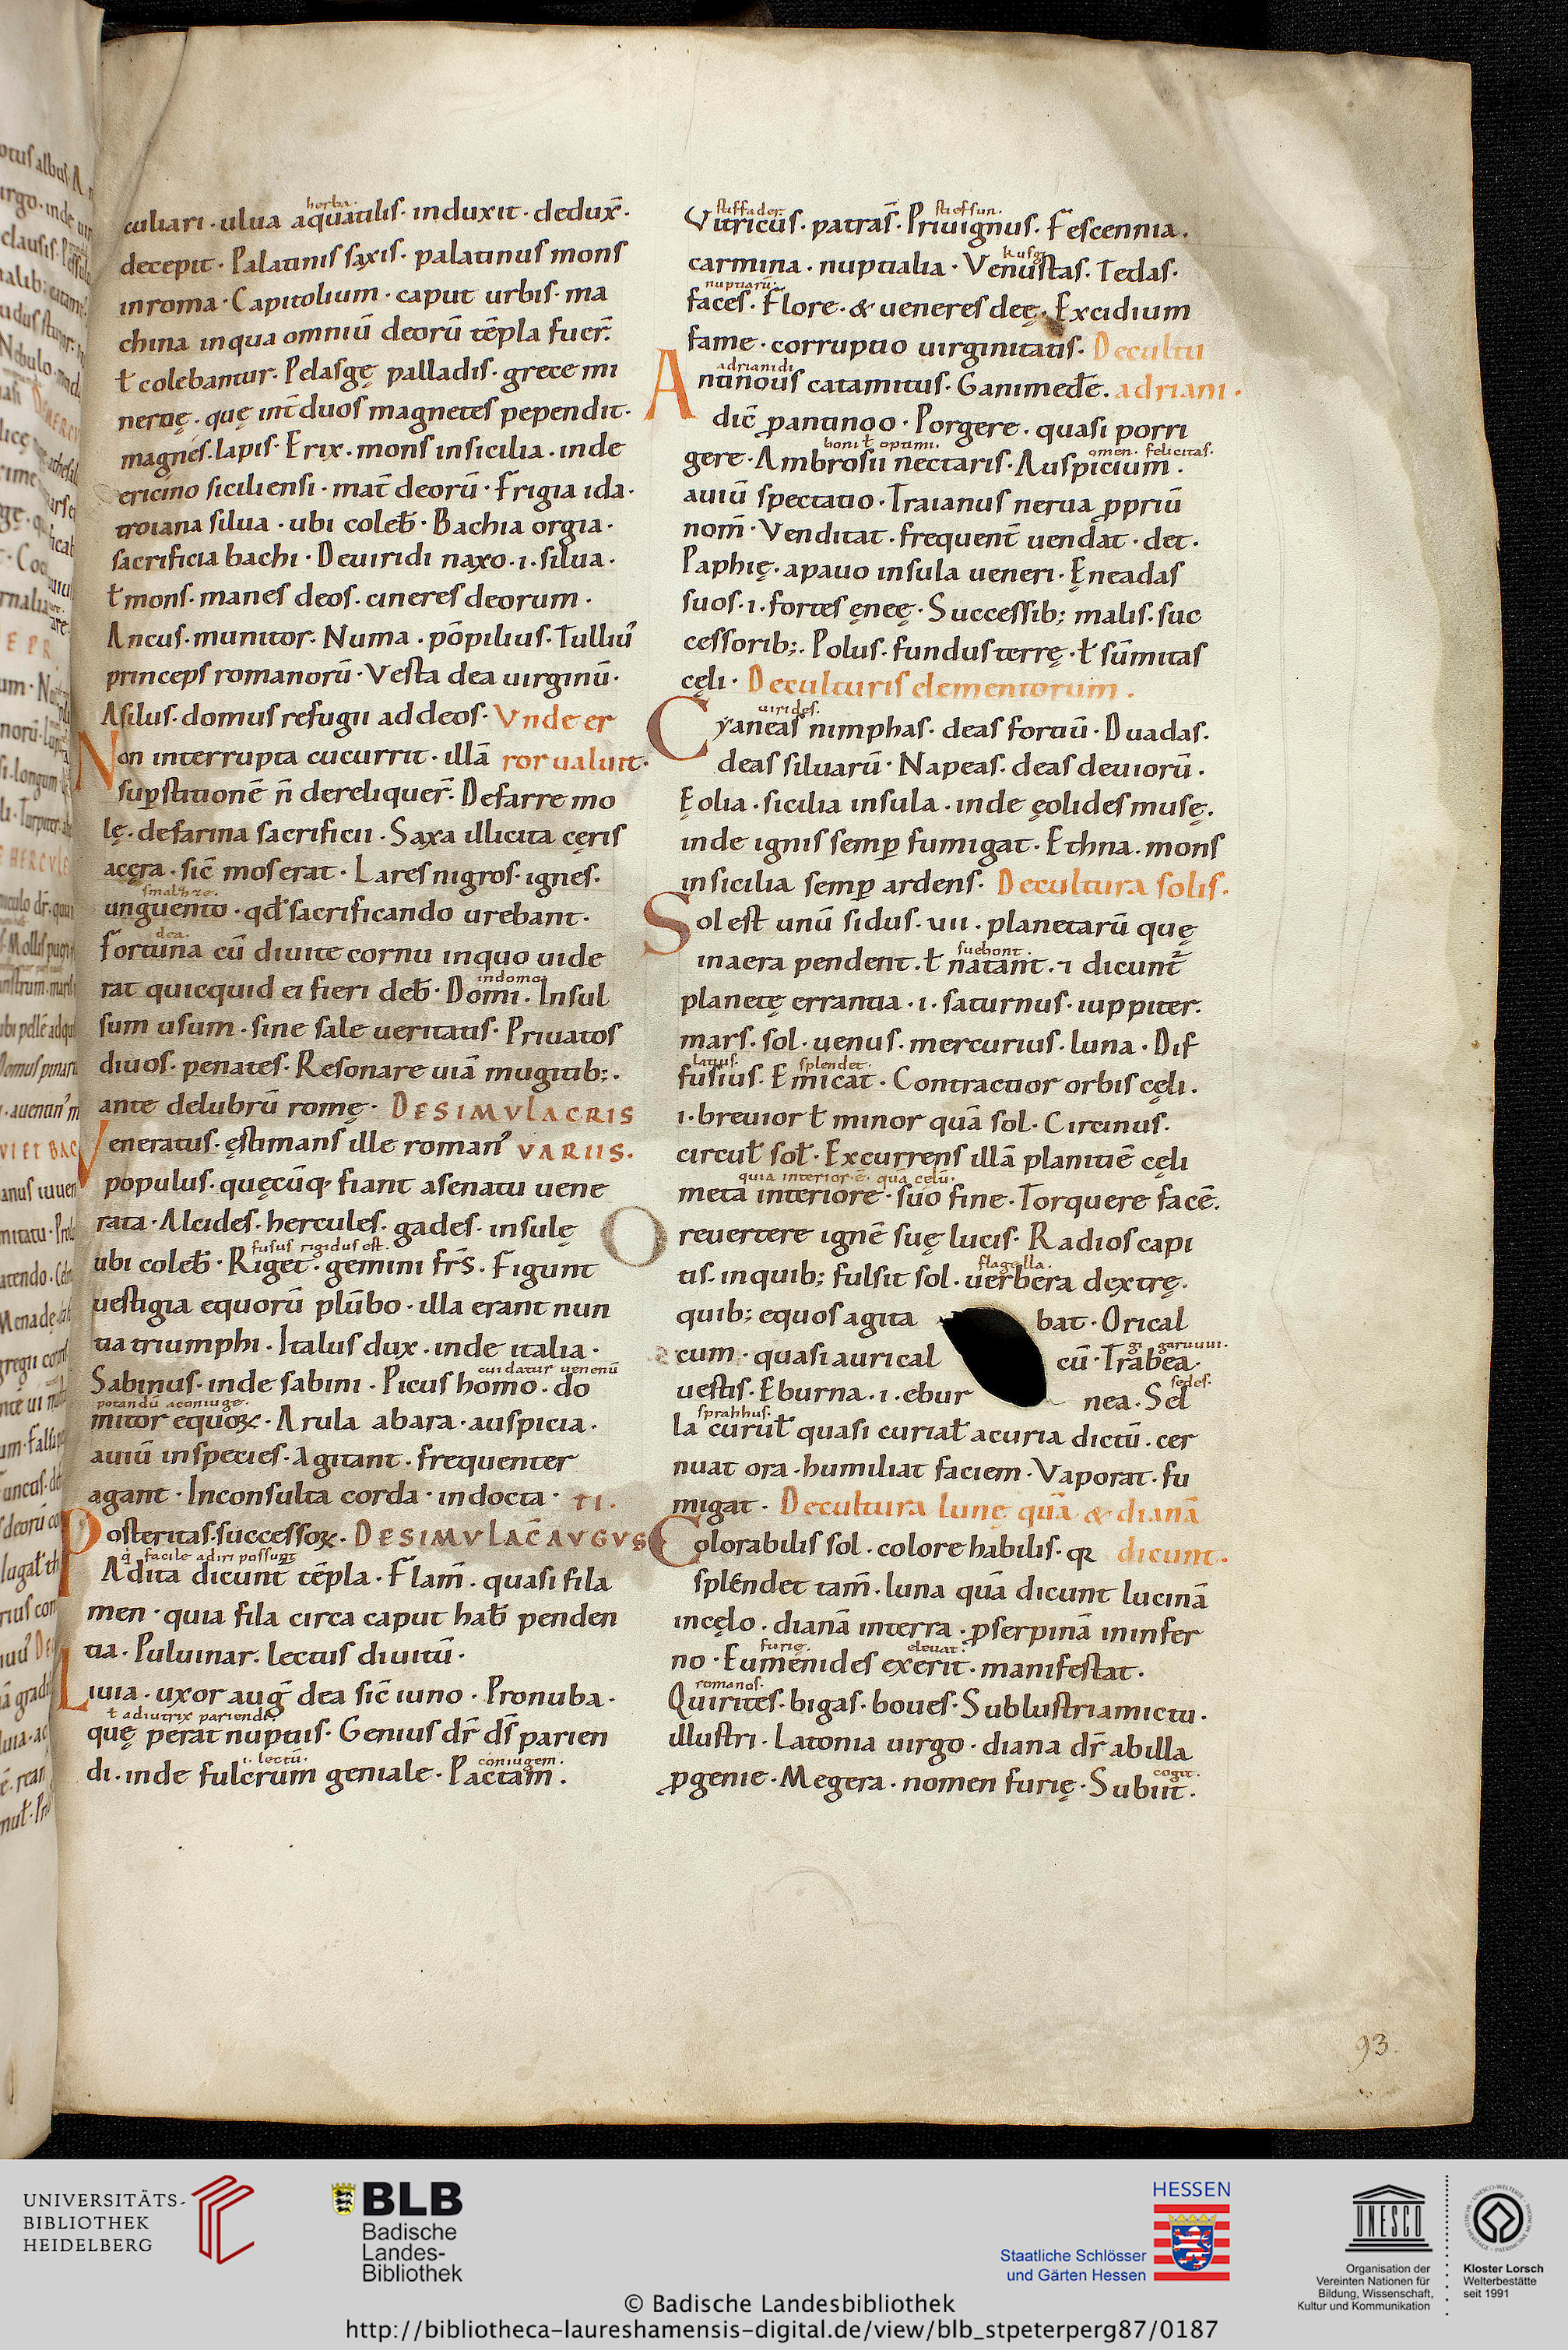 herba.
culiari · ulua aquatilis · induxit · dedux̄ ·
decepit · Palatinis saxis · palatinus mons
in roma · Capitolium · caput urbis · ma
china in qua omniū deorū tēpla fuer̄ .
ł colebantur · Pelasgę palladis · grece mi
neruę · quę int̄ duos magnetes pependit ·
magnes . lapis · Erix . mons in sicilia . inde
ericino siciliensi · mat̄ deorū · Frigia ida ·
troiana silua · ubi coleb̄ · Bachia orgia ·
sacrificia bachi · De uiridi naxo · i · silua ·
ł mons · manes deos · cineres deorum ·
Ancus · munitor · Numa · pōpilius · Tulliuˀ
princeps romanorū · Vesta dea uirginū ·
Asilus · domus refugii ad deos · Vnde er
Non interrupta cucurrit · illā ror ualuit ·
suꝑstitionē n̄ derelinquer̄ . De farre mo
lę · de farina sacrificii · Saxa illicita cęris
acęra · sic̄ mos erat · Lares nigros · ignes ·
smalhze .
unguento · qđ sacrificando urebant ·
dea .
fortuna cū diuite cornu in quo uide
in domo
rat quicquid ei fieri deb̄ · Domi . Insul
sum usum · sine sale ueritatis · Priuatos
diuos · penates · Resonare uiā mugitib; ·
ante delubrū romę · DE SIMVLACRIS
Veneratus · ęstimans ille romanˀ VARIIS .
populus · quęcūꝗ fiant a senatu uene
rata · Alcides · hercules · gades · insulę
fusus rigidus est .
ubi coleb̄ · Riget · gemini fr̄s · Figunt
uestigia equorū plūbo · illa erant nun
tia triumphi · Italus dux · inde italia ·
cui datur uenenū
Sabinus · inde sabini · Picus homo · do
potandū a coniuge .
mitor equoꝝ · Arula ab ara · auspicia ·
auiū inspecies · Agitant · frequenter
agant · Inconsulta corda · indocta · TI .
Posteritas . successoꝝ · DE SIMVLAC̄ AVGVS
q̇ facile adiri possunt
Adita dicunt tēpla · Flam̄ . quasi fila
men · quia fila circa caput hab̄ penden
tia · Puluinar . lectus diuitū ·
Liuia · uxor auḡ dea sic̄ iuno · Pronuba ·
ł adiutrix pariendi
quę perat nuptiis · Genius dr̄ ds̄ parien
i · lectū . coniugem .
di . inde fulcrum geniale · Pactam .
stiffader stiefsun .
Vitricus · patras̄ · Priuignus · Fescennia .
kusgi
carmina · nuptialia · Venustas · Tedas ·
nuptiarū
faces · Flore · & ueneres deę · Excidium
fame · corruptio uirginitatis · De cultu
adrianidi
Antinous catamitus · Ganimedē . adriani ·
dic̄ ꝑ antinoo · Porgere · quasi porri
boni ł optimi . omen · felicitas ·
gere · Ambrosii nectaris · Auspicium ·
auiū spectatio · Traianus nerua ꝓpriū
nom̄ · Venditat · frequent̄ uendat · det ·
Paphię · a pauo insula ueneri · Eneadas
suos · i · fortes ęneę · Successib; malis · suc
cessorib; · Polus · fundus terrę · ł sūmitas
cęli · De culturis elementorum .
uirides .
Cyaneas nimphas · deas fortiū · Duadas ·
deas siluarū · Napeas · deas deuiorū ·
Eolia · sicilia insula · inde ęolides musę .
inde ignis semꝑ fumigat · Ethna . mons
in sicilia semꝑ ardens · De cultura solis ·
Sol est unū sidus · uii · planetarū quę
suebont .
in aera pendent . ł natant . ⁊ dicunt̄
planetę errantia · i · saturnus · iuppiter .
mars . sol . uenus . mercurius . luna · Dif
latius . splendet .
fusius · Emicat · Contractior orbis cęli .
i · breuior ł minor quā sol · Circinus ·
circuł soł · Excurrens illā planitiē cęli
quia interior ē quā celū .
meta interiore · suo fine · Torquere facē .
O reuertere ignē suę lucis · Radios capi
flagella .
tis · in quib; fulsit sol · uerbera dextrę .
quib; equos agita bat · Orical
gi garuuui .
cum · quasi aurical cū · Trabea ·
sedes .
uestis · Eburna . i . ebur nea . Sel
sprahhus .
la curuł quasi curiał a curia dictū . cer
nuat ora · humiliat faciem · Vaporat · fu
migat · De cultura lunę quā & dianā
Colorabilis sol . colore habilis · ꝗ dicunt .
splendet tam̄ . luna quā dicunt lucinā
in cęlo . dianā in terra · ꝓserpinā in infer
furię . eleuat .
no · Eumenides exerit · manifestat ·
romanos .
Quirites · bigas · boues · Sublustri amictu ·
illustri · Latonia uirgo · diana dr̄ ab illa
cogit .
ꝓgenie · Megera · nomen furię · Subiit ·
93.
UNIVERSITÄTS-
BIBLIOTHEK
HEIDELBERG
BLB
Badische
Landes-
Bibliothek
HESSEN
Staatliche Schlösser
und Gärten Hessen
UNESCO
Organisation der
Vereinten Nationen für
Bildung, Wissenschaft,
Kultur und Kommunikation
Kloster Lorsch
Welterbestätte
seit 1991
© Badische Landesbibliothek
http://bibliotheca-laureshamensis-digital.de/view/blb_stpeterperg87/0187